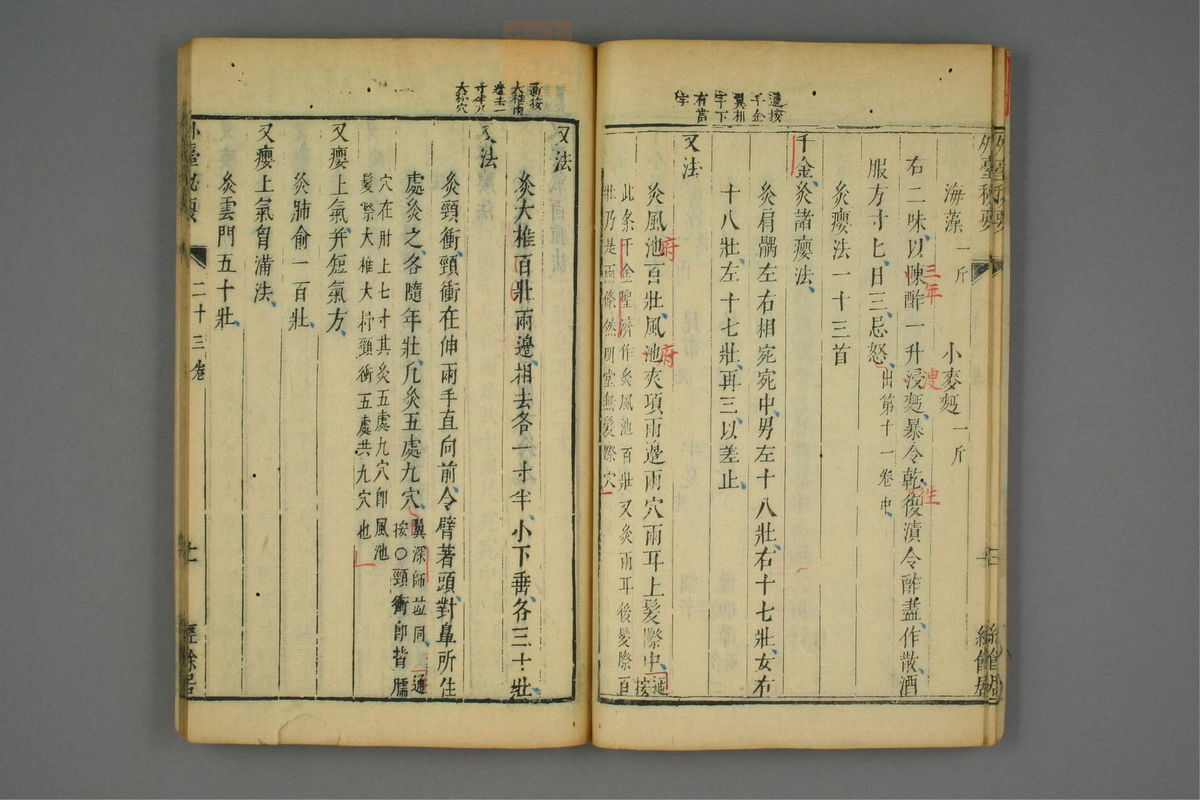 外臺秘要
海藻一斤 小麥麪一斤
右二味以陳酢一升浸麪暴令乾後漬令酢盡作散酒
三年
溲
生
服方寸匕日三忌怒出第十一卷中
灸癭法一十三首
千金灸諸癭法
灸肩髃左右相宛宛中男左十八壯右十七壯女右
十八壯左十七壯再三以差止
又法
灸風池百壯風池夾項兩邊兩穴兩耳上髮際中
府
府
通按
此条千金聖濟作灸風池百壯又灸兩耳後髮際百
壯乃是兩條然明堂無髮際穴
千金
翼相
字下
有當
字
又法
灸大椎百壯兩邊相去各一寸半小下垂各三十壯
又法
灸頸衝頸衝在伸兩手直向前令臂著頭對鼻所住
處灸之各隨年壯凡灸五處九穴
翼深師並同
通
按○頸衝即背臑
穴在肘上七寸其灸五處九穴即風池
髮際大椎大杼頸衝五處共九穴也
又癭上氣并短氣方
灸肺俞一百壯
又癭上氣胷滿法
灸雲門五十壯
外臺秘要
二十三卷
經餘居